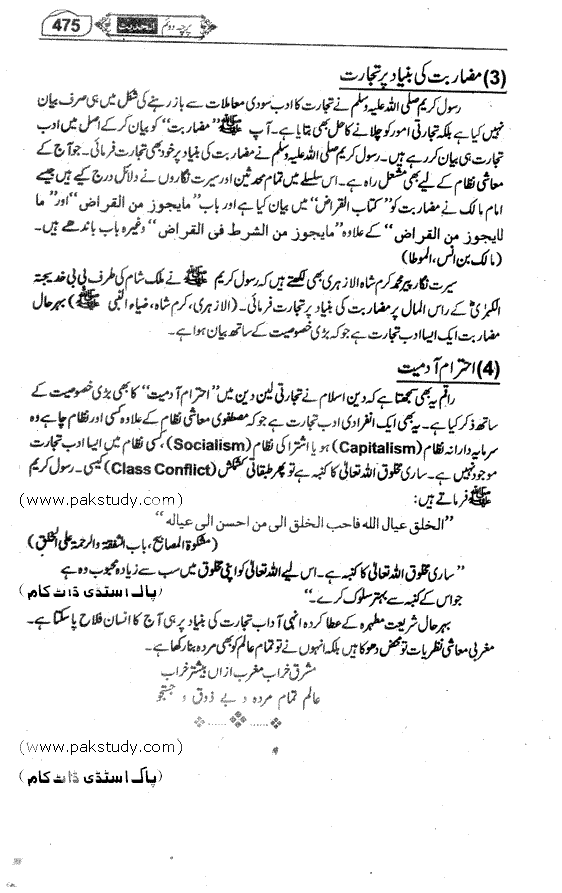 475 پرچہ دوئم الحدیث
(3) مضاربت کی بنیاد پر تجارت
رسول کریم صلی اللہ علیہ وسلم نے تجارت کا ادب سودی معاملات سے باز رہنے کی شکل میں ہی صرف بیان
نہیں کیا ہے بلکہ تجارتی امور کو چلانے کا حل بھی بتایا ہے۔ آپ ﷺ ”مضاربت“ کو بیان کر کے اصل میں ادب
تجارت ہی بیان کر رہے ہیں۔ رسول کریم صلی اللہ علیہ وسلم نے مضاربت کی بنیاد پر خود بھی تجارت فرمائی۔ جو آج کے
معاشی نظام کے لیے بھی مشعل راہ ہے۔ اس سلسلے میں تمام محدثین اور سیرت نگاروں نے دلائل درج کیے ہیں جیسے
امام مالک نے مضاربت کو ”کتاب القراض“ میں بیان کیا ہے اور باب ”مايجوز من القراض“ اور ”ما
لايجوز من القراض“ کے علاوہ ”مايجوز من الشرط فى القراض“ وغیرہ باب باندھے ہیں۔
(مالک بن انس، الموطا)
سیرت نگار پیر محمد کرم شاہ الازہری بھی لکھتے ہیں کہ رسول کریم ﷺ نے ملک شام کی طرف بی بی خدیجۃ
الکبریٰؓ کے راس المال پر مضاربت کی بنیاد پر تجارت فرمائی۔ (الازہری، کرم شاہ، ضیاء النبی ﷺ) بہرحال
مضاربت ایک ایسا ادب تجارت ہے جو کہ بڑی خصوصیت کے ساتھ بیان ہوا ہے۔
(4) احترام آدمیت
راقم یہ بھی سمجھتا ہے کہ دین اسلام نے تجارتی لین دین میں ”احترام آدمیت“ کا بھی بڑی خصوصیت کے
ساتھ ذکر کیا ہے۔ یہ بھی ایک انفرادی ادب تجارت ہے جو کہ مصطفوی معاشی نظام کے علاوہ کسی اور نظام چاہے وہ
سرمایہ دارانہ نظام (Capitalism) ہو یا اشتراکی نظام (Socialism)، کسی نظام میں ایسا ادب تجارت
موجود نہیں ہے۔ ساری مخلوق اللہ تعالیٰ کا کنبہ ہے تو پھر طبقاتی کشمکش (Class Conflict) کیسی۔ رسول کریم
ﷺ فرماتے ہیں: (www.pakstudy.com)
”الخلق عيال الله فاحب الخلق الى من احسن الى عياله“
(مشکوٰۃ المصابیح، باب الشفقۃ والرحمۃ علی الخلق)
”ساری مخلوق اللہ تعالیٰ کا کنبہ ہے۔ اس لیے اللہ تعالیٰ کو اپنی مخلوق میں سب سے زیادہ محبوب وہ ہے
جو اس کے کنبہ سے بہتر سلوک کرے۔“ (پاک اسٹڈی ڈاٹ کام)
بہرحال شریعت مطہرہ کے عطا کردہ انہی آداب تجارت کی بنیاد پر ہی آج کا انسان فلاح پا سکتا ہے۔
مغربی معاشی نظریات تو محض دھوکا ہیں بلکہ انہوں نے تو تمام عالم کو بھی مردہ بنا رکھا ہے۔
مشرق خراب مغرب ازاں بیشتر خراب
عالم تمام مردہ و بے ذوق و جستجو
(www.pakstudy.com)
(پاک اسٹڈی ڈاٹ کام)